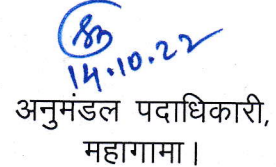 14.10.22
अनुमंडल पदाधिकारी,
महागामा।